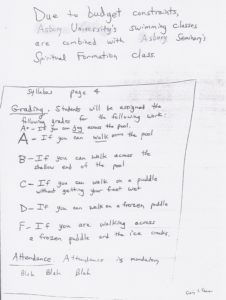 Due to budget constraints,
Asbury University's swimming classes
are combited with Asbury Seminary's
Spiritual Formation Class.
Syllabus page 4
Grading. Students will be assigned the
following grades for the following work:
A+ - If you can dog across the pool.
A - If you can walk across the pool
B - If you can walk across the
shallow end of the pool
C - If you can walk on a puddle
without getting your feet wet
D - If you can walk on a frozen puddle
F - If you are walking across
a frozen puddle and the ice cracks.
Attendance Attendance is mandatory
Blah Blah Blah